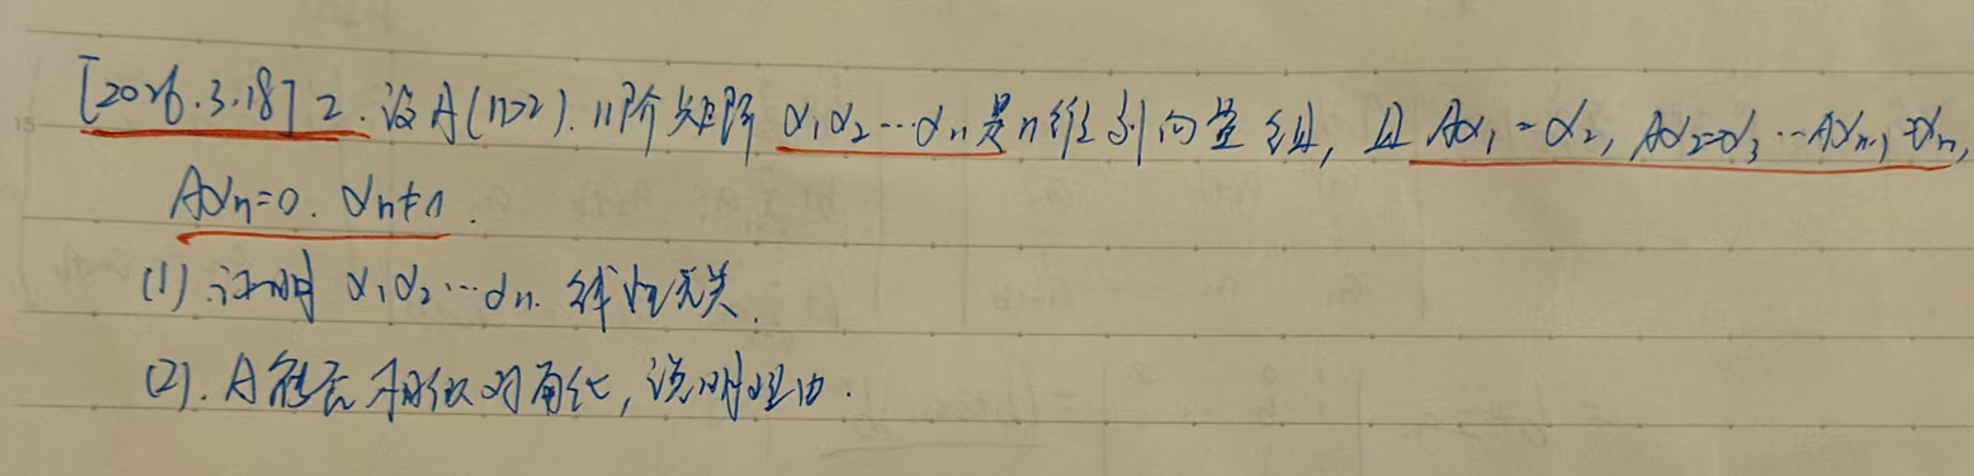 [2026.3.18] 2. 设A(n>2).n阶矩阵 α₁α₂…αn是n维列向量组, 且 Aα₁=α₂, Aα₂=α₃…Aαn-1=αn,
Aαn=0. αn≠0.
(1) 证明 α₁α₂…αn. 线性无关.
(2). A能否相似对角化, 说明理由.
15